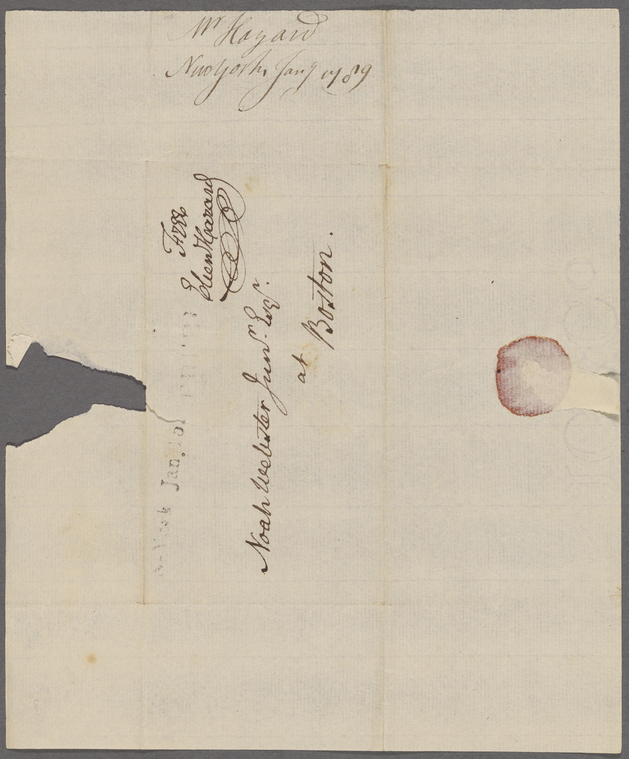 Mr Hazard
New York Jany 1789
Free
Eben Hazard
Noah Webster Junr. Esqr.
at Boston.
Jan.